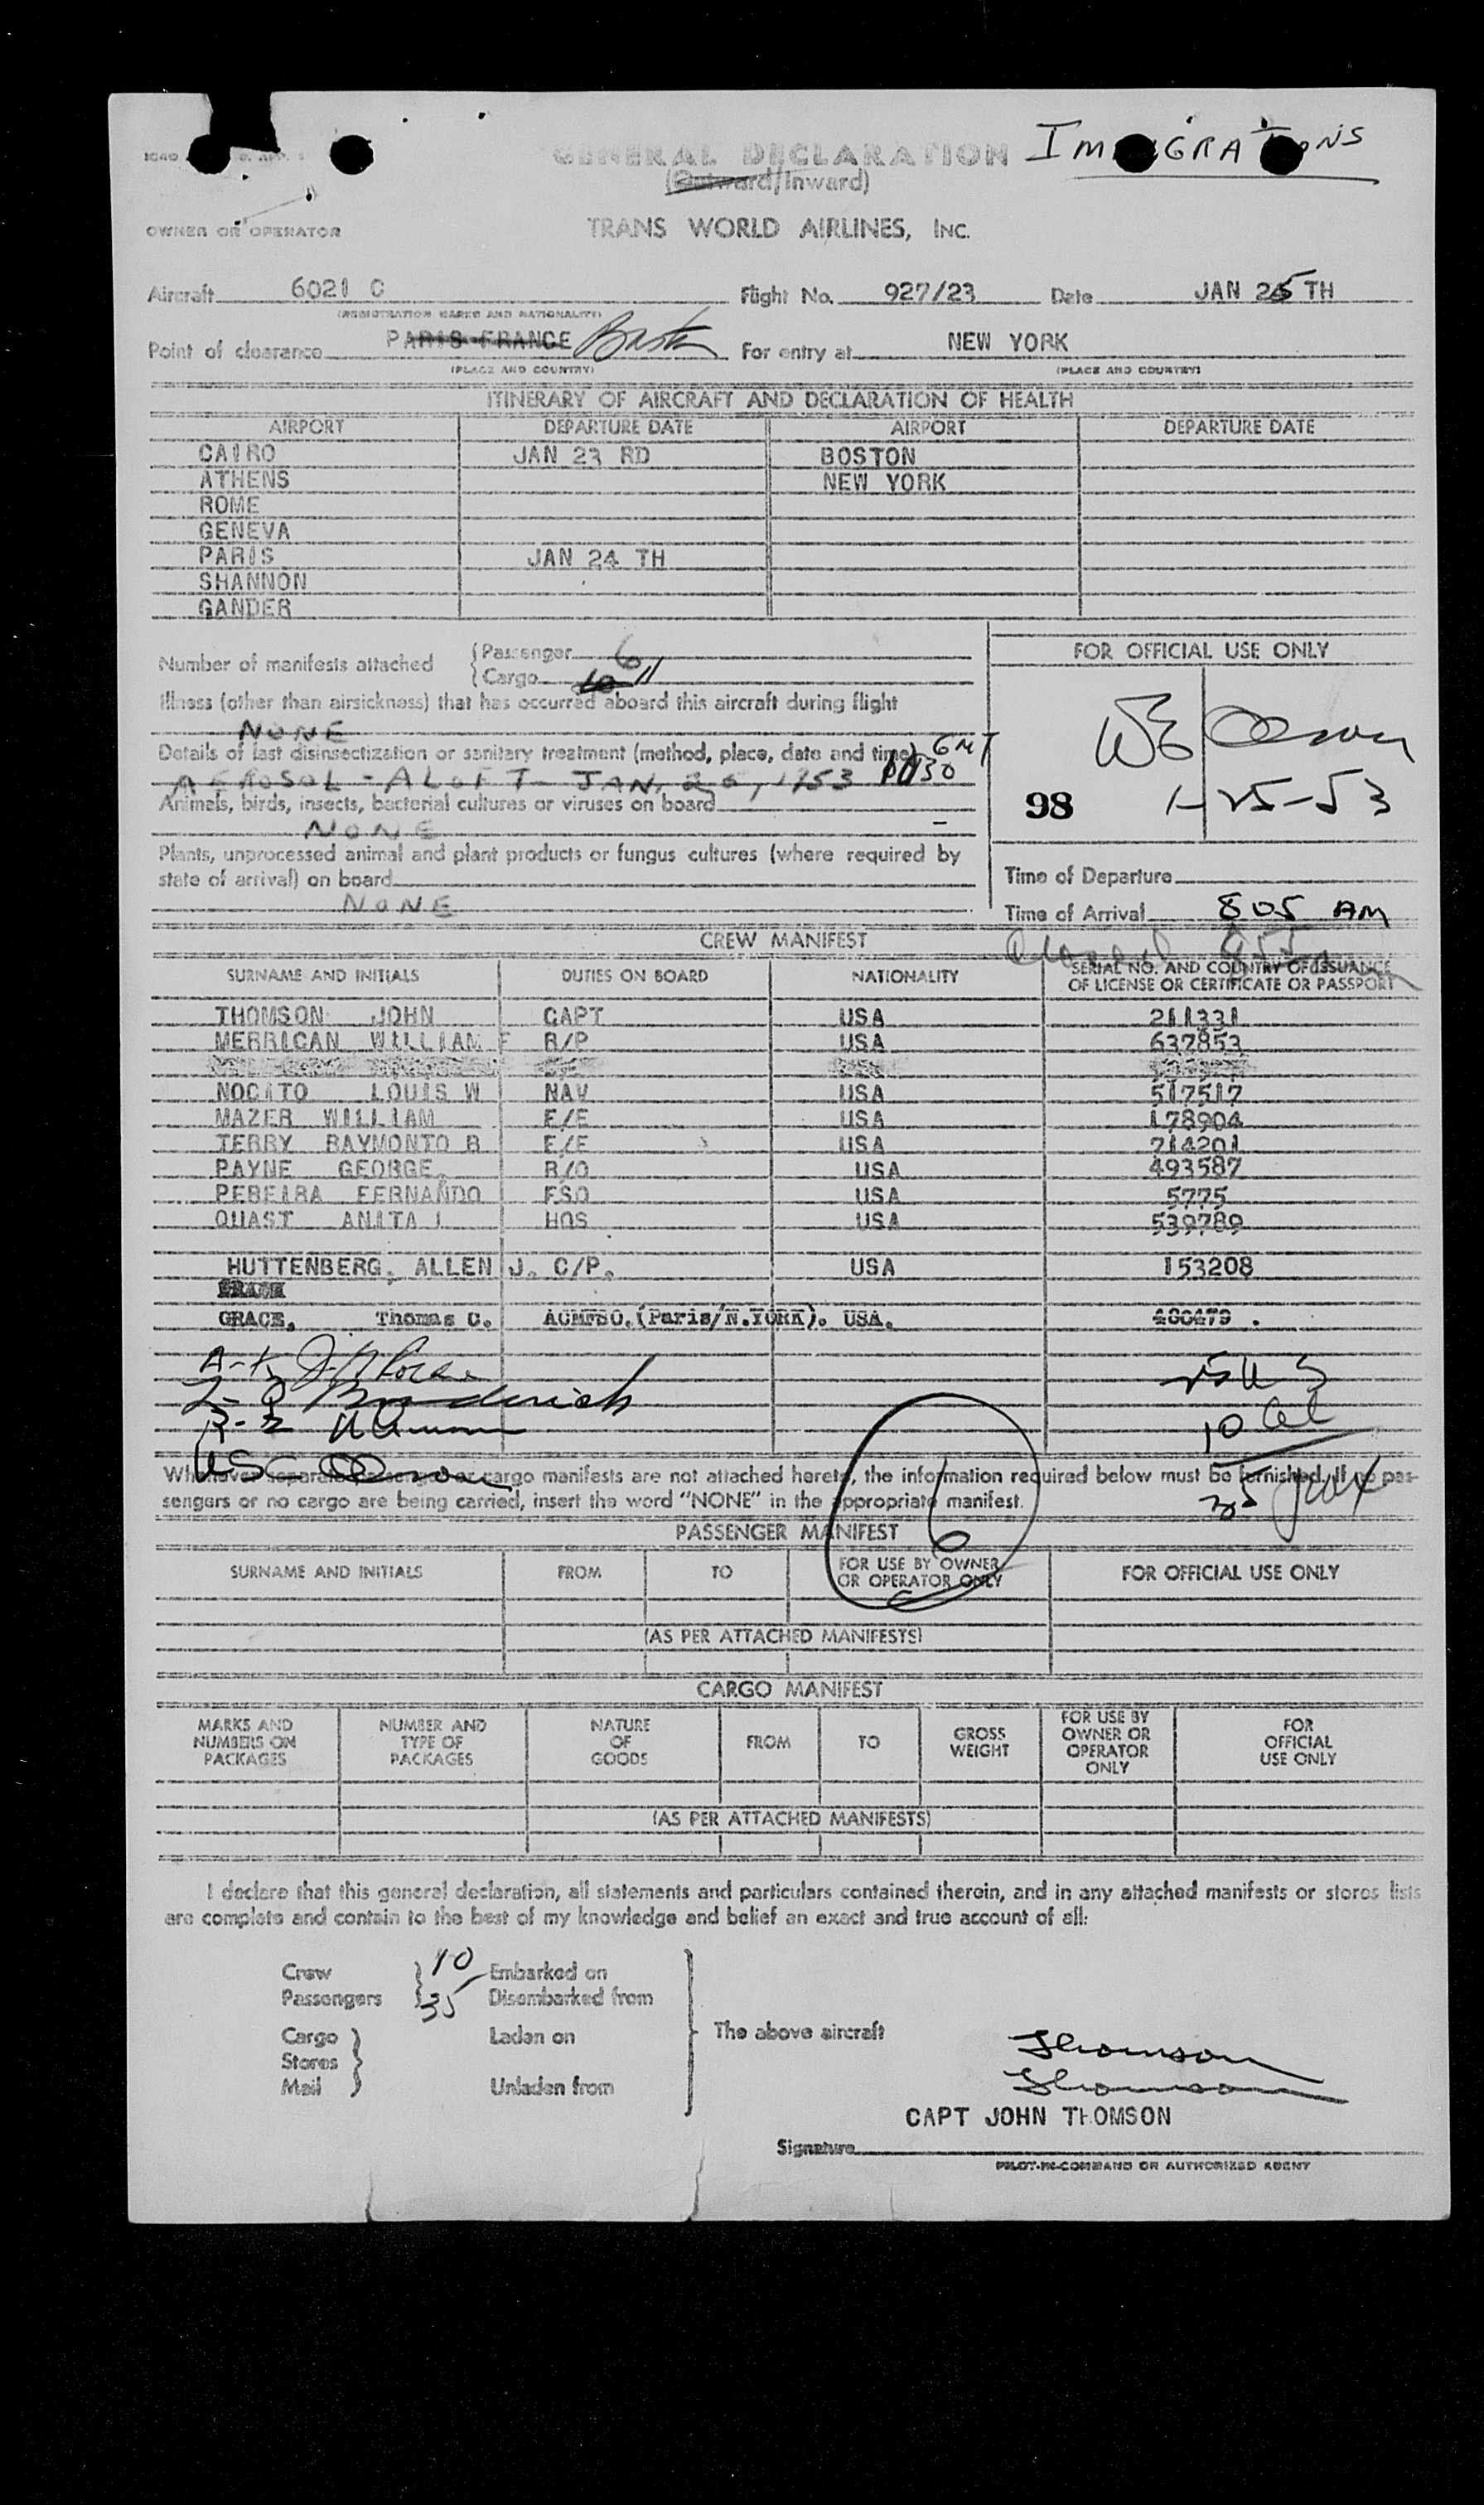 GENERAL DECLARATION
(Outward/Inward)
OWNER OR OPERATOR TRANS WORLD AIRLINES, INC.
Aircraft 6021 C Flight No. 927/23 Date JAN 25 TH
(REGISTRATION MARKS AND NATIONALITY)
Point of clearance PARIS FRANCE For entry at NEW YORK
(PLACE AND COUNTRY) (PLACE AND COUNTRY)
ITINERARY OF AIRCRAFT AND DECLARATION OF HEALTH
AIRPORT DEPARTURE DATE AIRPORT DEPARTURE DATE
CAIRO JAN 23 RD BOSTON
ATHENS NEW YORK
ROME
GENEVA
PARIS JAN 24 TH
SHANNON
GANDER
Number of manifests attached
Passenger 6
Cargo 10 11
FOR OFFICIAL USE ONLY
Illness (other than airsickness) that has occurred aboard this aircraft during flight
NONE
Details of last disinsectization or sanitary treatment (method, place, date and time) GMT
AEROSOL - ALOFT - JAN, 25, 1953 1130
Animals, birds, insects, bacterial cultures or viruses on board
NONE
98 1-25-53
Plants, unprocessed animal and plant products or fungus cultures (where required by
state of arrival) on board
NONE
Time of Departure
Time of Arrival 805 AM
CREW MANIFEST
SURNAME AND INITIALS DUTIES ON BOARD NATIONALITY SERIAL NO. AND COUNTRY OF ISSUANCE
OF LICENSE OR CERTIFICATE OR PASSPORT
THOMSON JOHN CAPT USA 211331
MERRIGAN WILLIAM F R/P USA 637853
NOCITO LOUIS W NAV USA 517517
MAZER WILLIAM F/E USA 178904
TERRY RAYMONTO B F/E USA 714201
PAYNE GEORGE R/O USA 493587
PEREIRA FERNANDO FSO USA 5775
QUAST ANITA L HOS USA 539789
HUTTENBERG, ALLEN J. C/P. USA 153208
GRACE, Thomas C. ACMFSO.(Paris/N.YORK). USA. 480479.
10
Whenever separate passenger or cargo manifests are not attached hereto, the information required below must be furnished. If no pas-
sengers or no cargo are being carried, insert the word "NONE" in the appropriate manifest.
35
6
PASSENGER MANIFEST
SURNAME AND INITIALS FROM TO FOR USE BY OWNER OR OPERATOR ONLY FOR OFFICIAL USE ONLY
(AS PER ATTACHED MANIFESTS)
CARGO MANIFEST
MARKS AND NUMBERS ON PACKAGES NUMBER AND TYPE OF PACKAGES NATURE OF GOODS FROM TO GROSS WEIGHT FOR USE BY OWNER OR OPERATOR ONLY FOR OFFICIAL USE ONLY
(AS PER ATTACHED MANIFESTS)
I declare that this general declaration, all statements and particulars contained therein, and in any attached manifests or stores lists
are complete and contain to the best of my knowledge and belief an exact and true account of all:
Crew 10 Embarked on
Passengers 35 Disembarked from
Cargo Laden on The above aircraft
Stores
Mail Unladen from
Thomson
Thomson
CAPT JOHN THOMSON
Signature
PILOT-IN-COMMAND OR AUTHORIZED AGENT